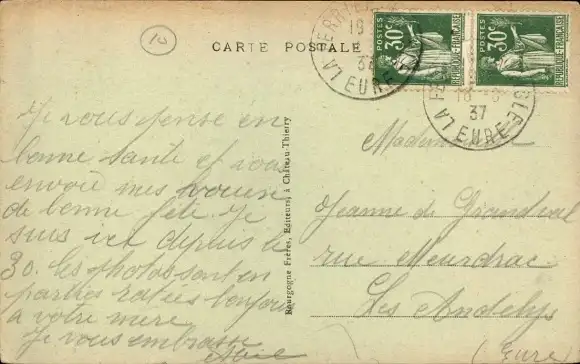 CARTE POSTALE
POSTES
30c
REPUBLIQUE FRANÇAISE
POSTES
30c
REPUBLIQUE FRANÇAISE
37
EURE
18 - 6
37
EURE
Bourgogne Frères, Editeurs, à Château-Thierry
Je vous pense en
bonne santé et vous
envoie mes voeux
de bonne fête. Je
suis ici depuis le
30. les photos sont en
parties ratées bonjour
à votre mère.
Je vous embrasse
Jeanne de Grandval
rue Meurdrac
Les Andelys
(Eure)